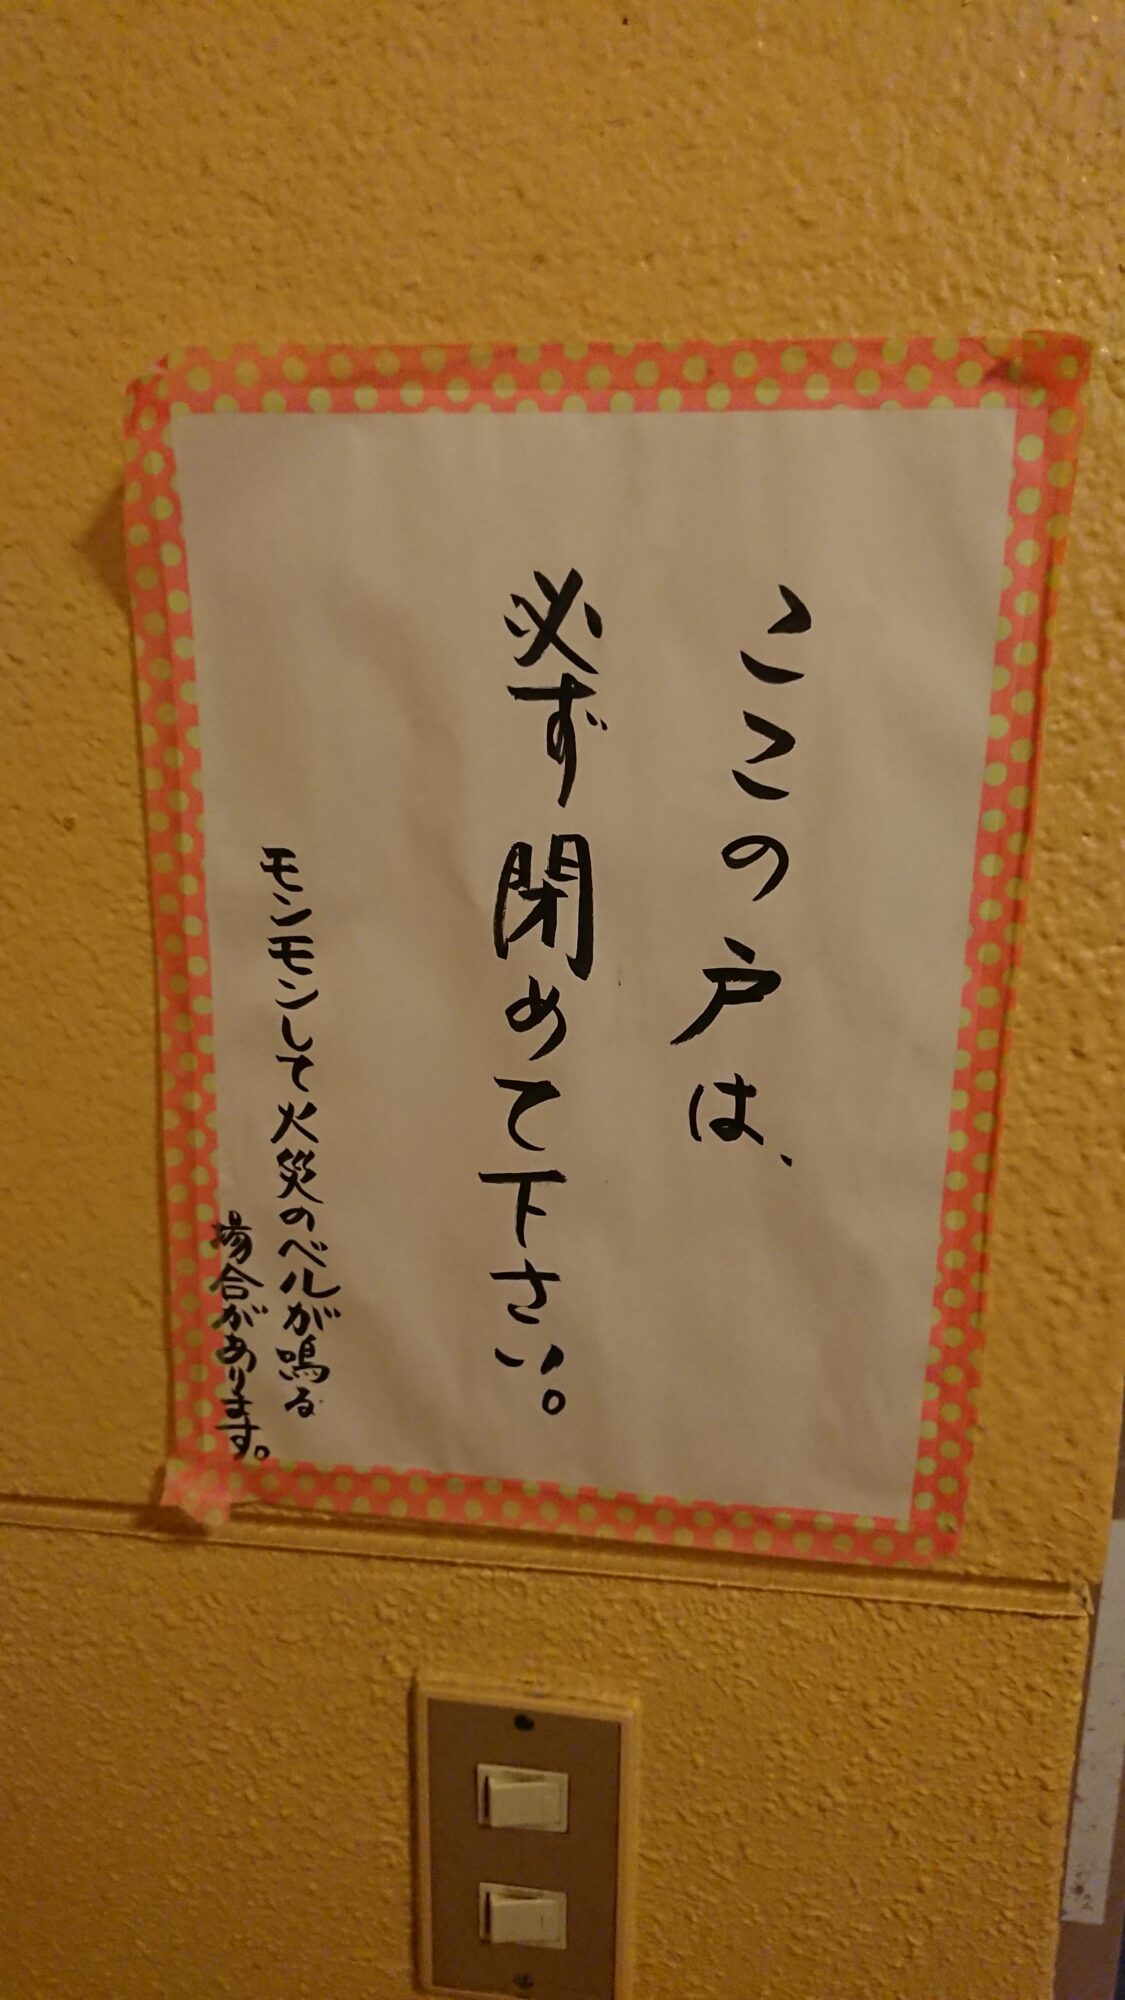 ここの戸は、
必ず閉めて下さい。
モンモンして火災のベルが鳴る
場合があります。